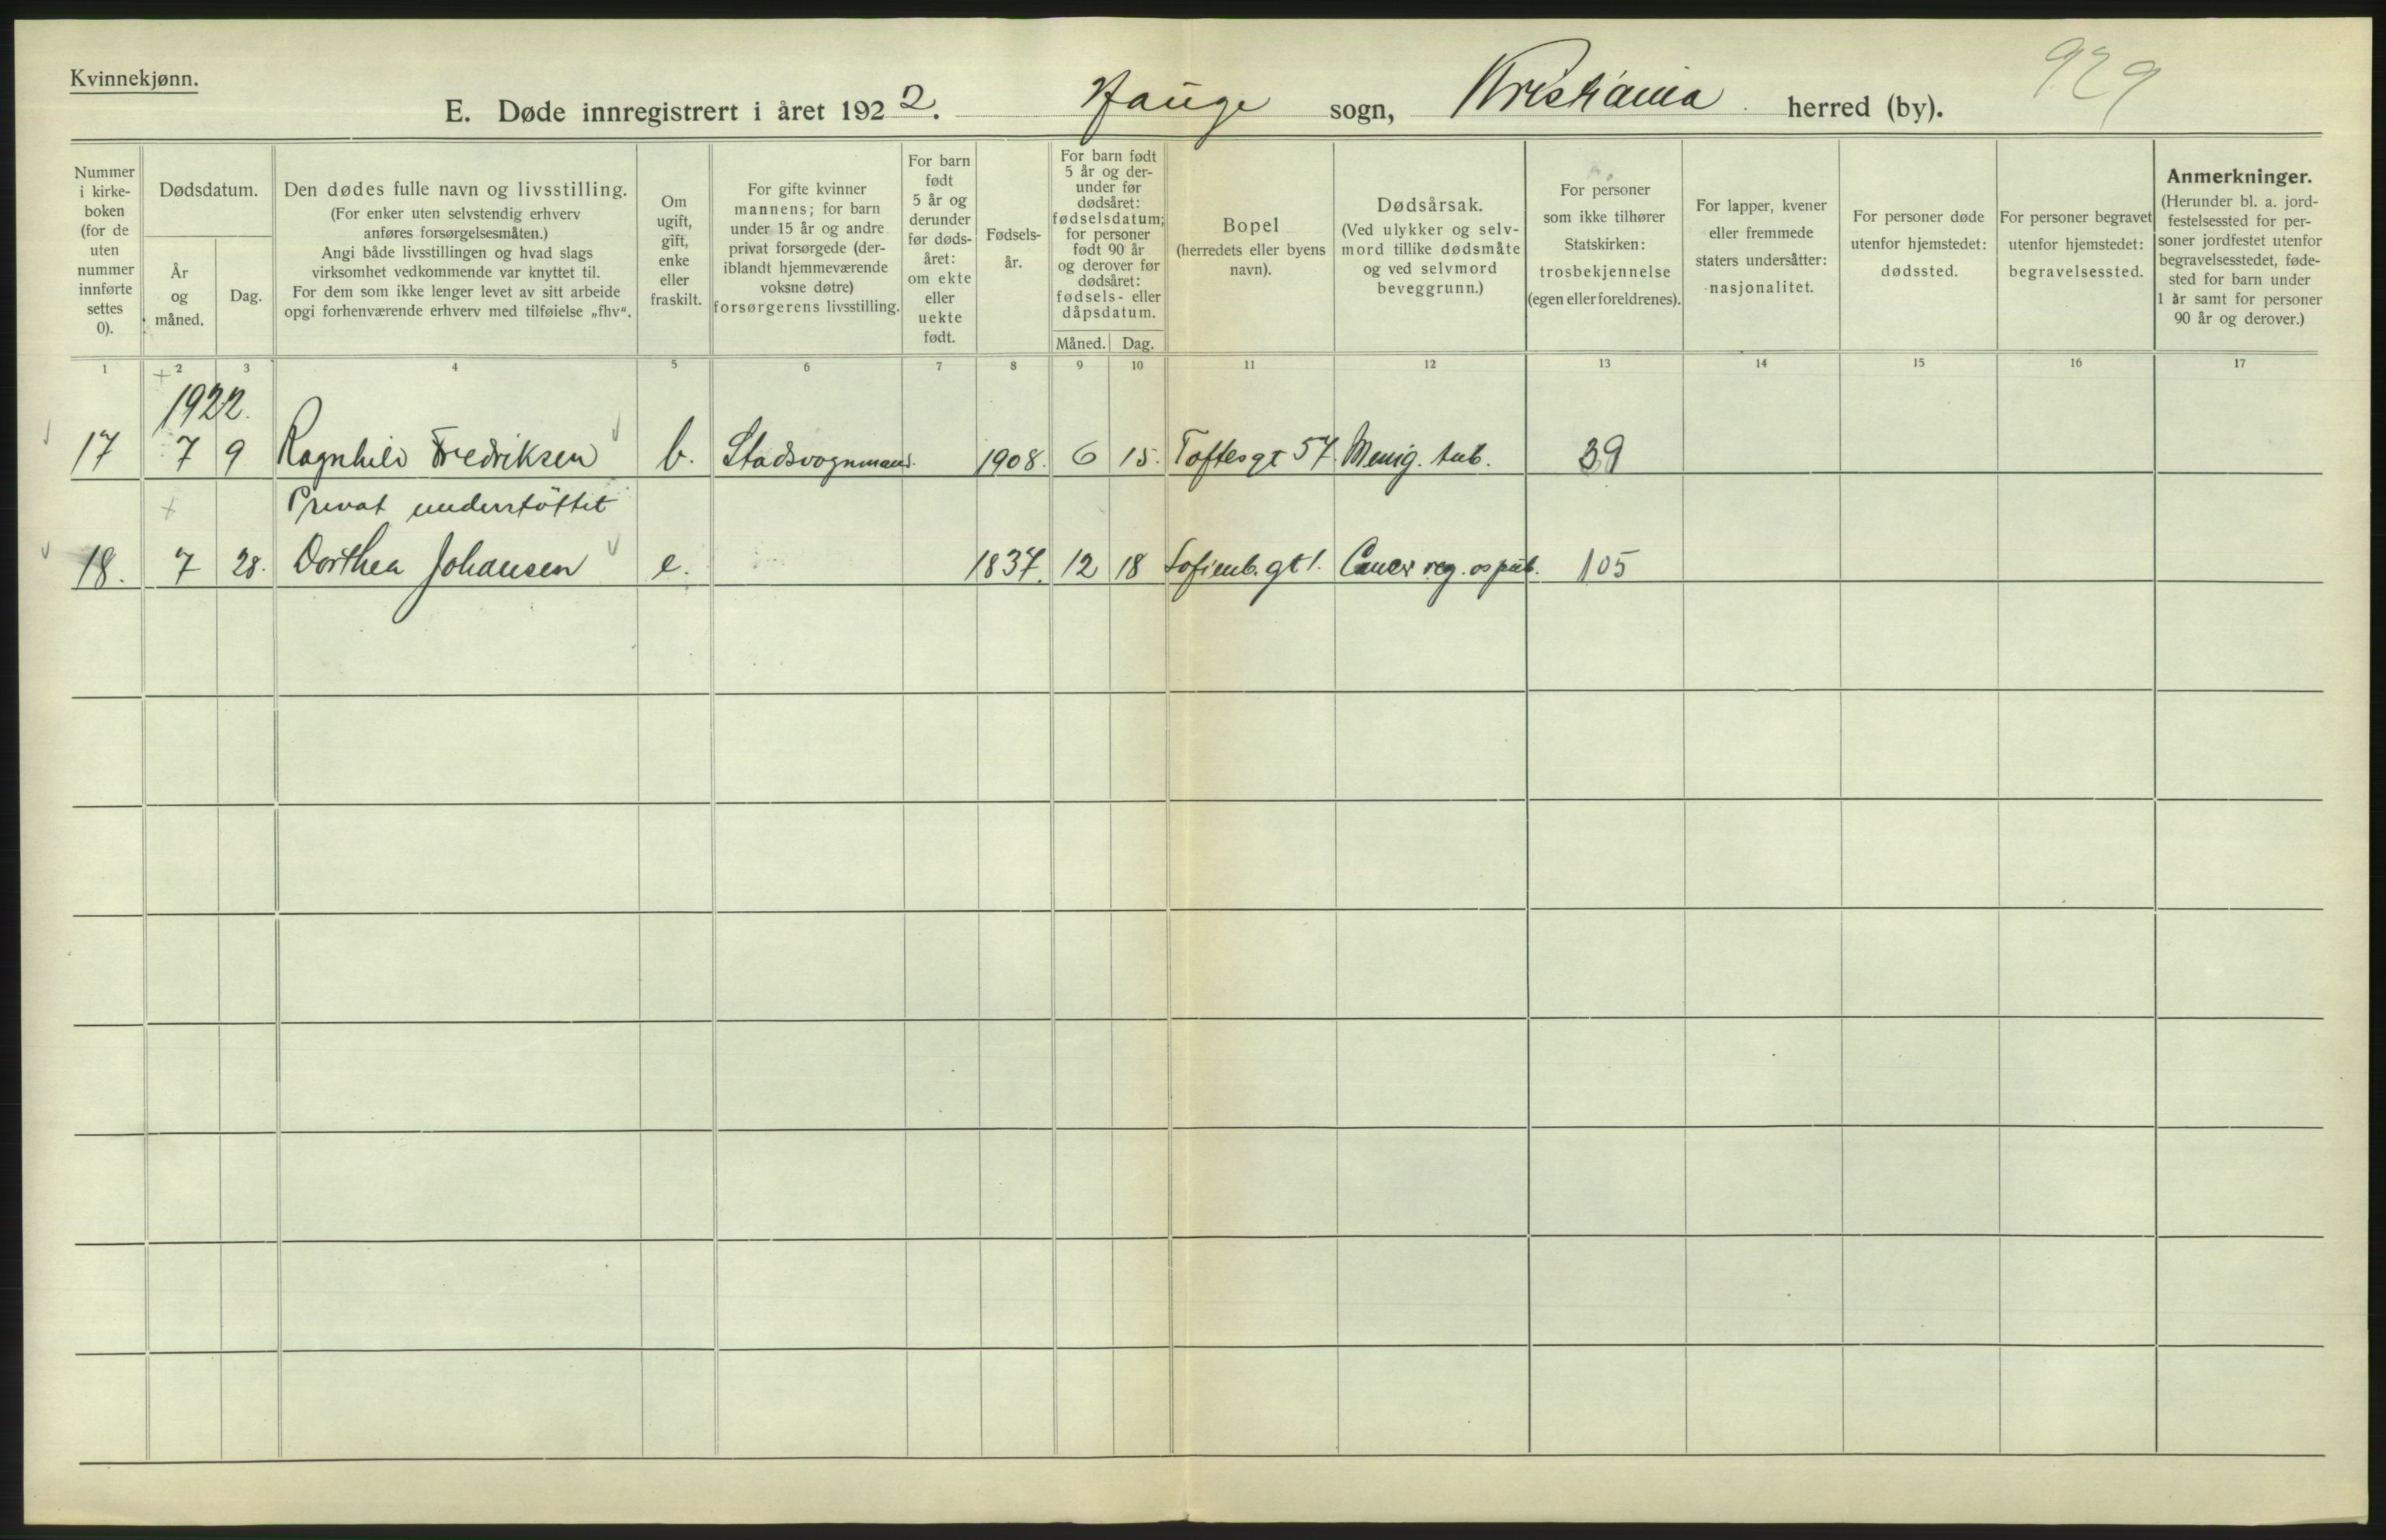 Kvinnekjønn.
929
E. Døde innregistrert i året 1922. Hauge sogn, Kristiania herred (by).
Nummer
i kirke-
boken
(for de
uten
nummer
innførte
settes
0).
Dødsdatum.
År
og
måned.
Dag.
Den dødes fulle navn og livsstilling.
(For enker uten selvstendig erhverv
anføres forsørgelsesmåten.)
Angi både livsstillingen og hvad slags
virksomhet vedkommende var knyttet til.
For dem som ikke lenger levet av sitt arbeide
opgi forhenværende erhverv med tilføielse „fhv“.
Om
ugift,
gift,
enke
eller
fraskilt.
For gifte kvinner
mannens; for barn
under 15 år og andre
privat forsørgede (der-
iblandt hjemmeværende
voksne døtre)
forsørgerens livsstilling.
For barn
født
5 år og
derunder
før døds-
året:
om ekte
eller
uekte
født.
Fødsels-
år.
For barn født
5 år og der-
under før
dødsåret:
fødselsdatum;
for personer
født 90 år
og derover før
dødsåret:
fødsels- eller
dåpsdatum.
Måned. Dag.
Bopel
(herredets eller byens
navn).
Dødsårsak.
(Ved ulykker og selv-
mord tillike dødsmåte
og ved selvmord
beveggrunn.)
For personer
som ikke tilhører
Statskirken:
trosbekjennelse
(egen eller foreldrenes).
For lapper, kvener
eller fremmede
staters undersåtter:
nasjonalitet.
For personer døde
utenfor hjemstedet:
dødssted.
For personer begravet
utenfor hjemstedet:
begravelsessted.
Anmerkninger.
(Herunder bl. a. jord-
festelsessted for per-
soner jordfestet utenfor
begravelsesstedet, føde-
sted for barn under
1 år samt for personer
90 år og derover.)
1 2 3 4 5 6 7 8 9 10 11 12 13 14 15 16 17
1922.
17 7 9 Ragnhild Fredriksen b. Stadsvognmand. 1908. 6 15. Toftesgt 57. Menig. tub. 39
Privat understöttet
18. 7 28. Dorthea Johansen e. 1837. 12 18 Sofienb. gt 1. Cancer reg. os pub. 105